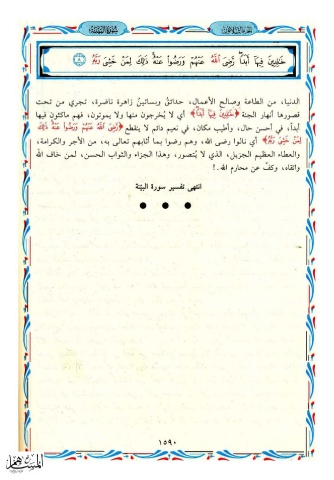 الجزء الثلاثون
سورة البينة
خَٰلِدِينَ فِيهَآ أَبَدًا رَّضِىَ ٱللَّهُ عَنْهُمْ وَرَضُوا۟ عَنْهُ ذَٰلِكَ لِمَنْ خَشِىَ رَبَّهُۥ ٨
الدنيا، من الطاعة وصالح الأعمال، حدائق وبساتينُ زاهرة ناضرة، تجري من تحت
قصورها أنهار الجنة ﴿خَٰلِدِينَ فِيهَآ أَبَدًا﴾ أي لا يُخرجون منها ولا يموتون، فهم ماكثون فيها
أبداً، في أحسن حال، وأطيب مكان، في نعيم دائم لا ينقطع ﴿رَّضِىَ ٱللَّهُ عَنْهُمْ وَرَضُوا۟ عَنْهُ ذَٰلِكَ
لِمَنْ خَشِىَ رَبَّهُۥ﴾ أي نالوا رضى الله، وهم رضوا بما أثابهم تعالى به، من الأجر والكرامة،
والعطاء العظيم الجزيل، الذي لا يُتصور، وهذا الجزاء والثواب الحسن، لمن خاف الله
واتقاه، وكفَّ عن محارم الله.!
انتهى تفسير سورة البينة
١٥٩٠